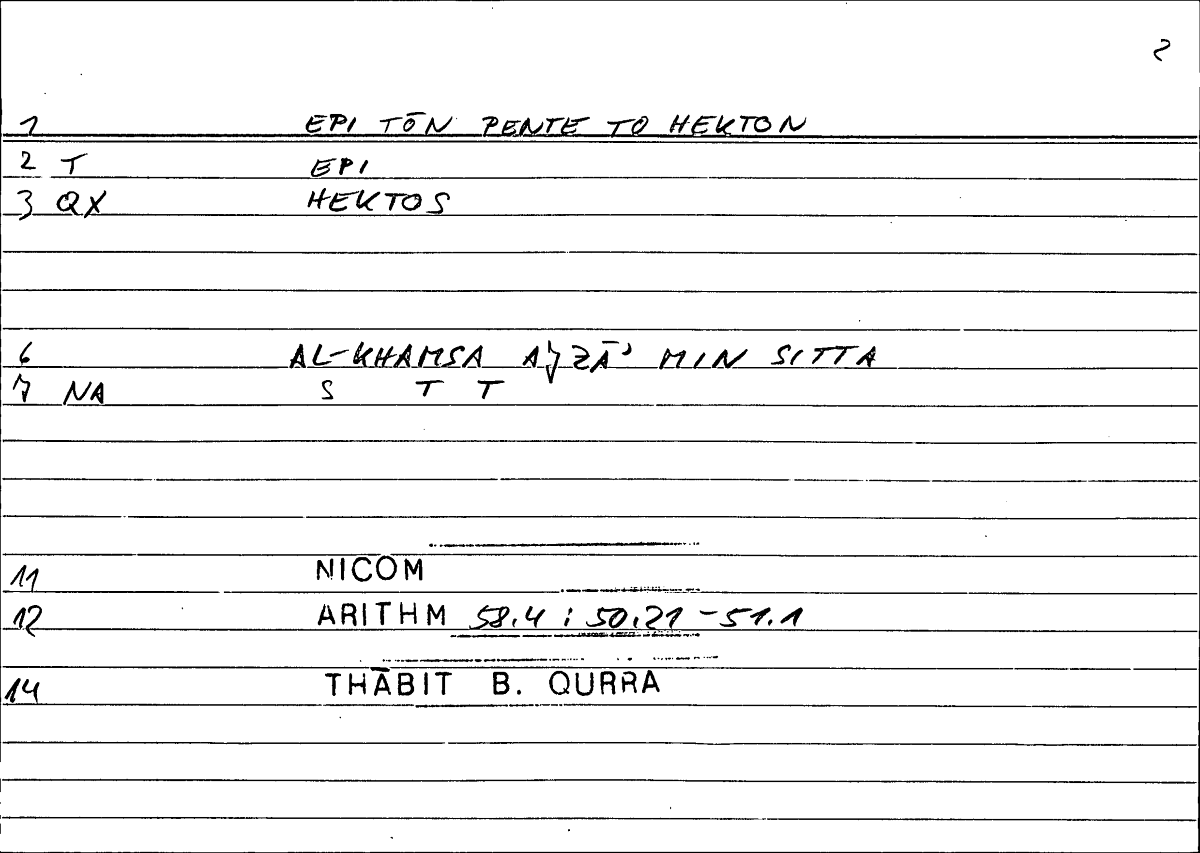 2
1 EPI TŌN PENTE TO HEKTON
2 T EPI
3 QX HEKTOS
6 AL-KHAMSA AJZĀʾ MIN SITTA
7 NA S T T
11 NICOM
12 ARITHM 58.4 : 50.21 - 51.1
14 THĀBIT B. QURRA